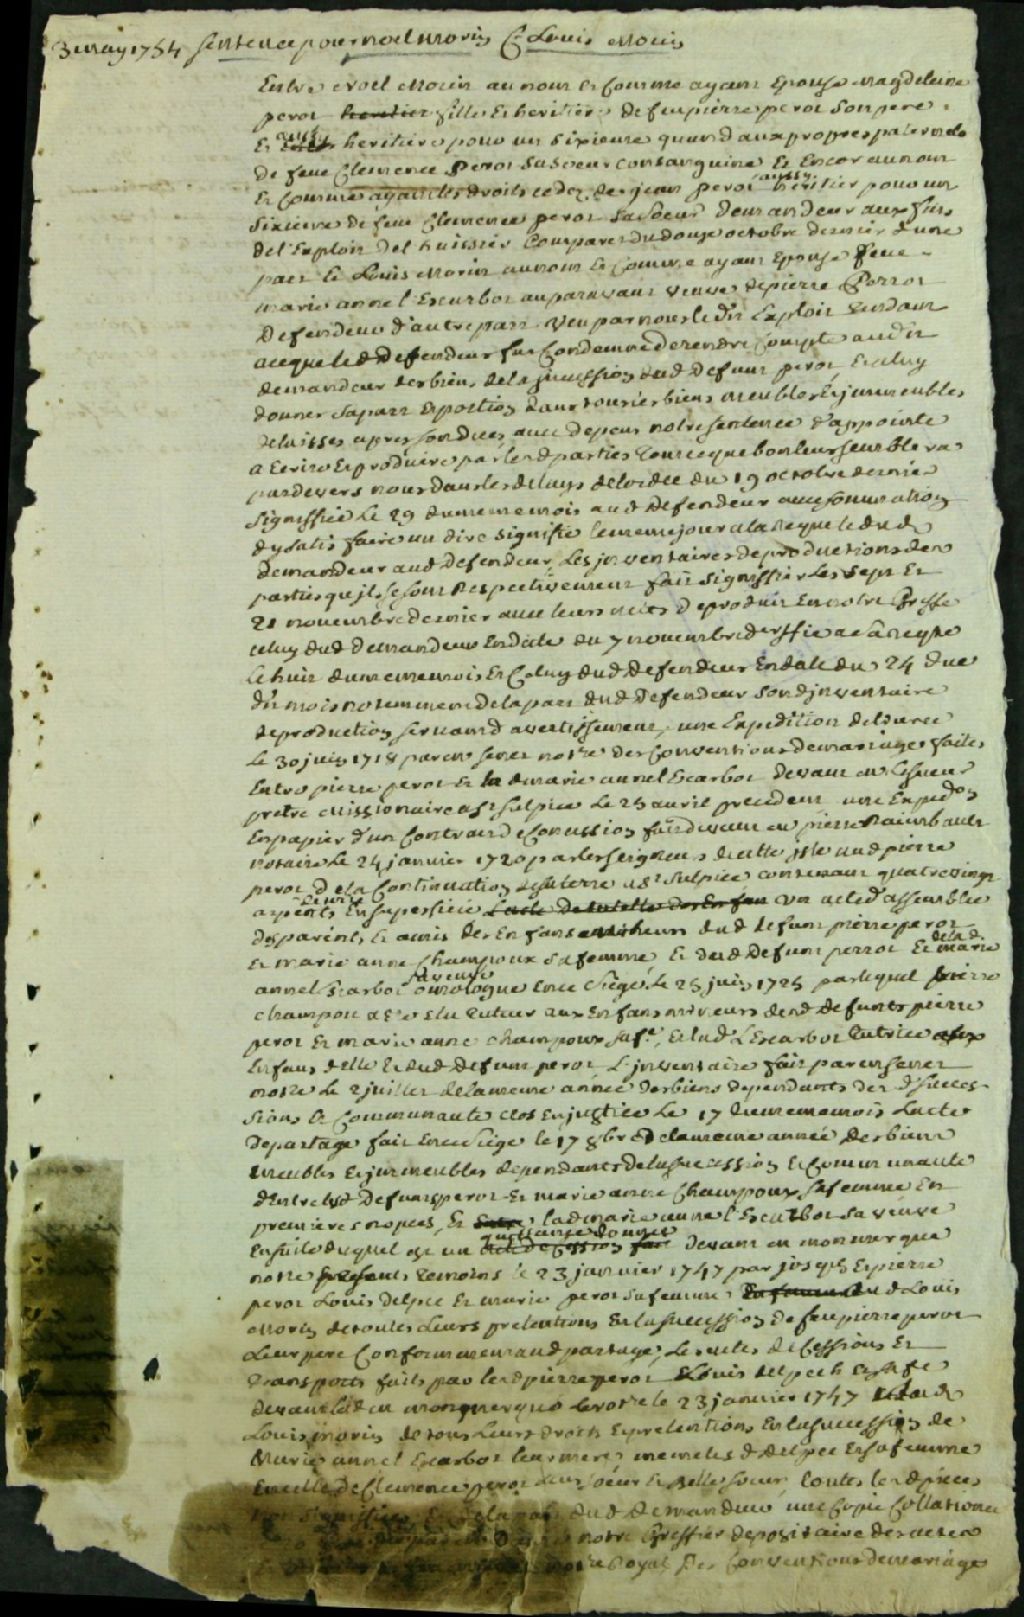 3 may 1754 sentence pour noel morin C. Louis morin
Entre noel morin au nom et comme ayant Epousé magdeleine
perot heritier fille Et heritiere de feu pierre perot son pere
Et aussy heritiere pour un sixieme quand aux propres paternels
de feue Clemence Perot sa soeur consanguine Et Encor au nom
Et comme ayant les droits cedez de jean perot aussy heritier pour un
sixieme de feue Clemence perot sa soeur demandeur aux fins
de l'Exploit de l huissier Comparet du douze octobre dernier d'une
part Et Louis morin au nom Et comme ayant Epousé feue
marie anne l'Escarbot auparavant veuve de pierre Perrot
Defendeur d'autre part. Veu par nous led^t Exploit tendant
a ceque led Defendeur fut Condemné de rendre Compte aud^t
demandeur des biens de la succession dud defunt perot, Et a luy
donner sa part Et portion dans tous les biens meubles Et jmmeubles
delaissés apres son deces, avec depens notre sentence d'appointe
a Ecrire Et produire par les d parties tout ce que bon leur semblera
pardevers nous dans les delays de lordce du 19 octobre dernier
Signiffiée Le 29 du meme mois aud defendeur avec sommation
dy satisfaire un dire signifié le meme jour a la Requete dud
demandeur aud defendeur, Les jnventaires de productions des
parties qu'jls se sont Respectivement fait signiffier Les sept Et
21 novembre dernier avec leurs actes de produit En notre Greffe
celuy dud demandeur En date du 7 novembre signiffié a sa Reqte
Le huit du meme mois Et Celuy dud defendeur En date du 24 due
d^t mois notamment de la part dud Defendeur son d jnventaire
de production servant d'avertissement, une Expedition delivrée
Le 30 juin 1718 par senet not^re des Conventions de mariage faites
Entre pierre perot Et la d marie anne l Escarbot devant m Lesueur
pretre missionaire a S^t sulpice Le 25 avril precedent une Exped^on
En papier d'un Contrat de Concession fait devant m pierre Raimbault
notaire Le 24 janvier 1720 par les seigneurs de cette jsle aud pierre
perot de la Continuation de sa terre a S^t Sulpice contenant quatre vingt
arpents En superficie L'acte de tutelle des Enfans un acte d'assemblée
des parents Et amis des Enfans mineurs dud defunt pierre perot
Et marie anne Champoux sa femme Et dud defunt perrot Et de lad. marie
anne l'Escarbot sa veuve omologué En ce siege Le 25 juin 1725 par lequel pierre
Champou a Eté Elu tuteur aux Enfans mineurs desd defunts pierre
perot Et marie anne champoux sa fe, Et lad L Escarbot tutrice aux
Enfans d'elle Et dud defunt perot, L jnventaire fait par m senet
not^re Le 2 juillet de la meme année des biens dependants des d succes-
sions Et Communauté clos En justice Le 17 du meme mois L'acte
de partage fait En ce siege le 17 8bre de la meme année des biens
meubles Et jmmeubles dependants de la succession Et Communauté
d'Entre led Defunt perot Et marie anne Champoux, sa femme En
premieres nopces, Et la d marie anne l'Escarbot sa veuve
Ensuite duquel est un quittance donnée acte de Cession fait devant m monmerqué
not^re presents temoins le 23 janvier 1747 par joseph Et pierre
perot Louis delpee Et marie perot sa femme dud Louis
morin de toutes Leurs pretentions En la succession de feu pierre perot
Leur pere Conformement aud partage, Les actes de Cessions Et
transports faits par lesd pierre perot Louis delpech Et sa fe
devant led m monmerqué Le not^re le 23 janvier 1747 aud
Louis morin de tous Leurs droits Et pretentions En la succession de
Marie anne l Escarbot leur mere, memes les d delpee Et sa femme
En celle de Clemence perot Leur soeur Et Belle soeur, toutes les d pieces
Signiffiées Et de la part dud demandeur une Copie Collationée
notre Greffier depositaire des actes
not^re Royal des Conventions de mariage